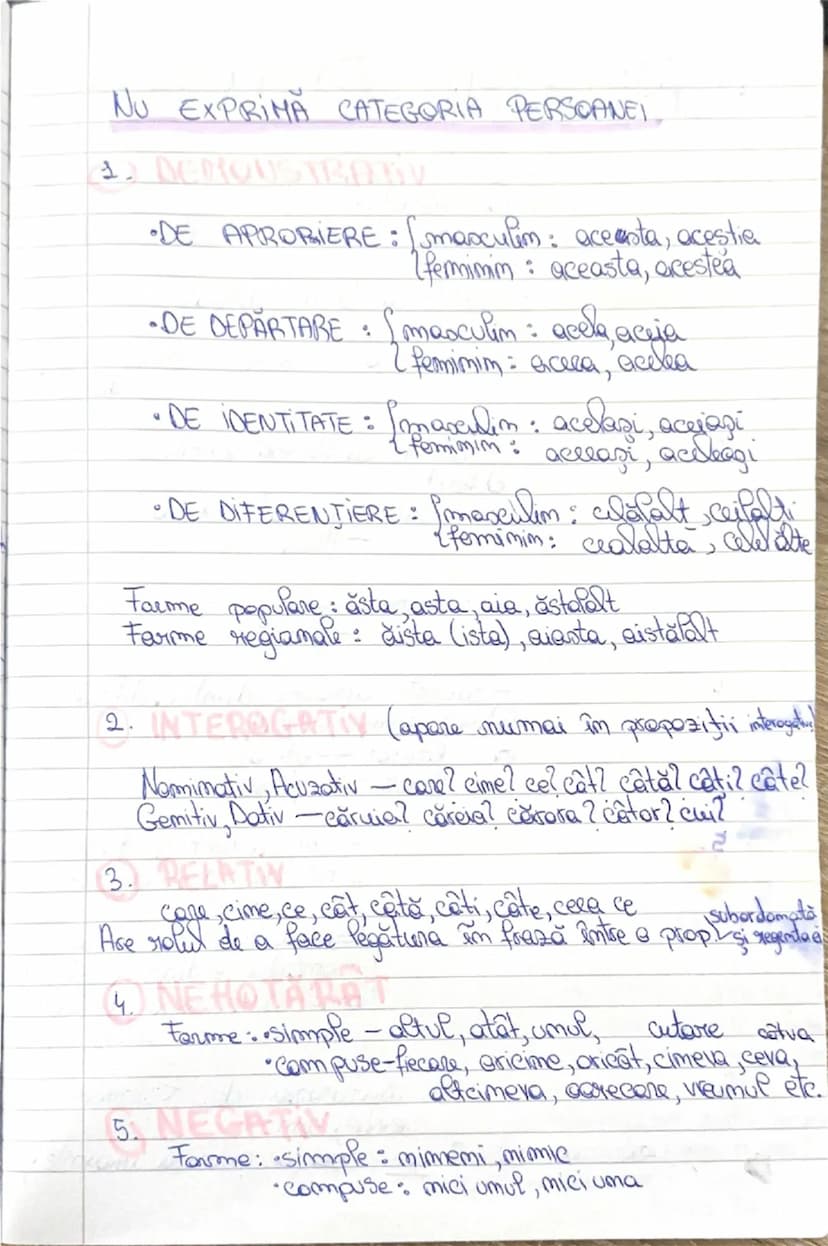 NU EXPRIMĂ CATEGORIA PERSOANEI
1. DEMONSTRATIV
•DE APROPIERE: masculin: aceasta, aceștia
feminin: aceasta, acestea
•DE DEPĂRTARE: masculin: acela, aceia
feminin: aceea, acelea
•DE IDENTITATE: masculin: același, aceiași
feminin: aceeași, aceleași
•DE DIFERENȚIERE: masculin: celălalt, ceilalți
feminin: cealaltă, celelalte
Forme populare: ăsta, asta, aia, ăstălalt
Forme regionale: ăista (ista), aiasta, aistălalt
2. INTEROGATIV (apare numai în propoziții interogative)
Nominativ, Acuzativ – care? cine? ce? cât? câtă? câți? câte?
Genitiv, Dativ – căruia? căreia? cărora? câtor? cui?
3. RELATIV
care, cine, ce, cât, câtă, câți, câte, ceea ce
Are rolul de a face legătura în frază între o prop. subordonată și regenta ei
4. NEHOTĂRÂT
Forme: •simple – altul, atât, unul, cutare câtva
•compuse – fiecare, oricine, oricât, cineva, ceva,
altcineva, oarecare, vreunul etc.
5. NEGATIV
Forme: •simple: nimeni, nimic
•compuse: nici unul, nici una